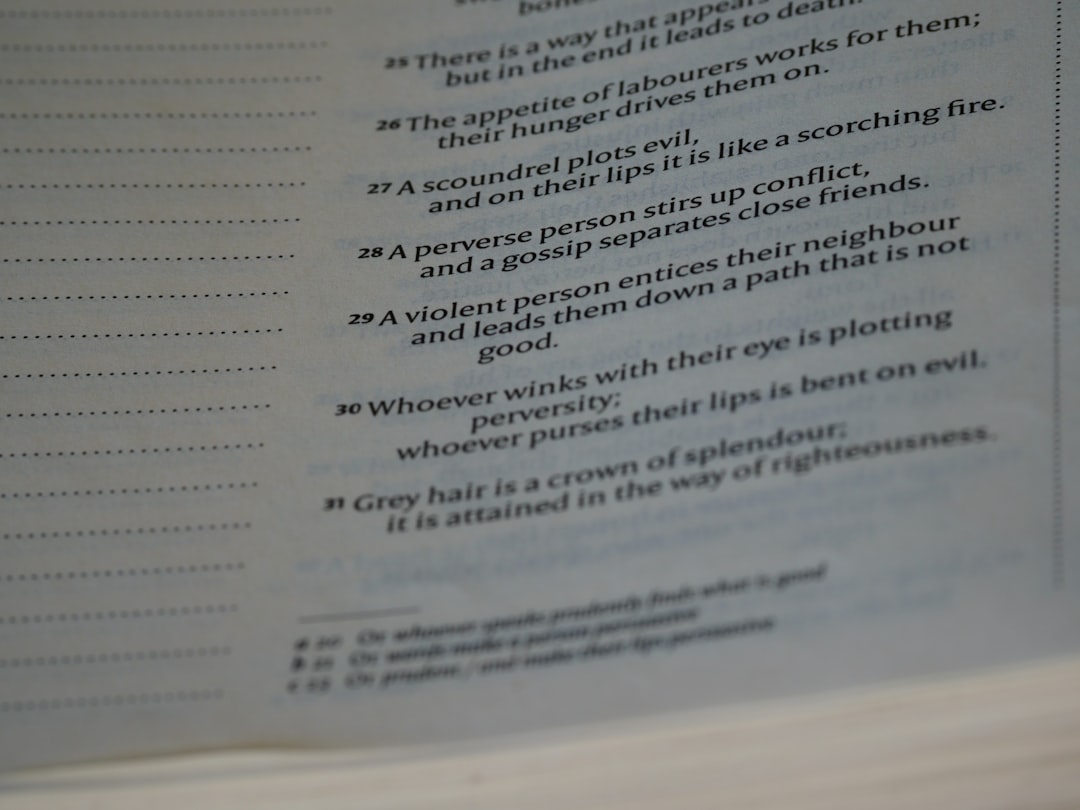 25 There is a way that appears
but in the end it leads to death.
26 The appetite of labourers works for them;
their hunger drives them on.
27 A scoundrel plots evil,
and on their lips it is like a scorching fire.
28 A perverse person stirs up conflict,
and a gossip separates close friends.
29 A violent person entices their neighbour
and leads them down a path that is not
good.
30 Whoever winks with their eye is plotting
perversity;
whoever purses their lips is bent on evil.
31 Grey hair is a crown of splendour;
it is attained in the way of righteousness.
Or whoever speaks prudently finds what is good
Or words make a person persuasive
Or prudent / and make their lips persuasive